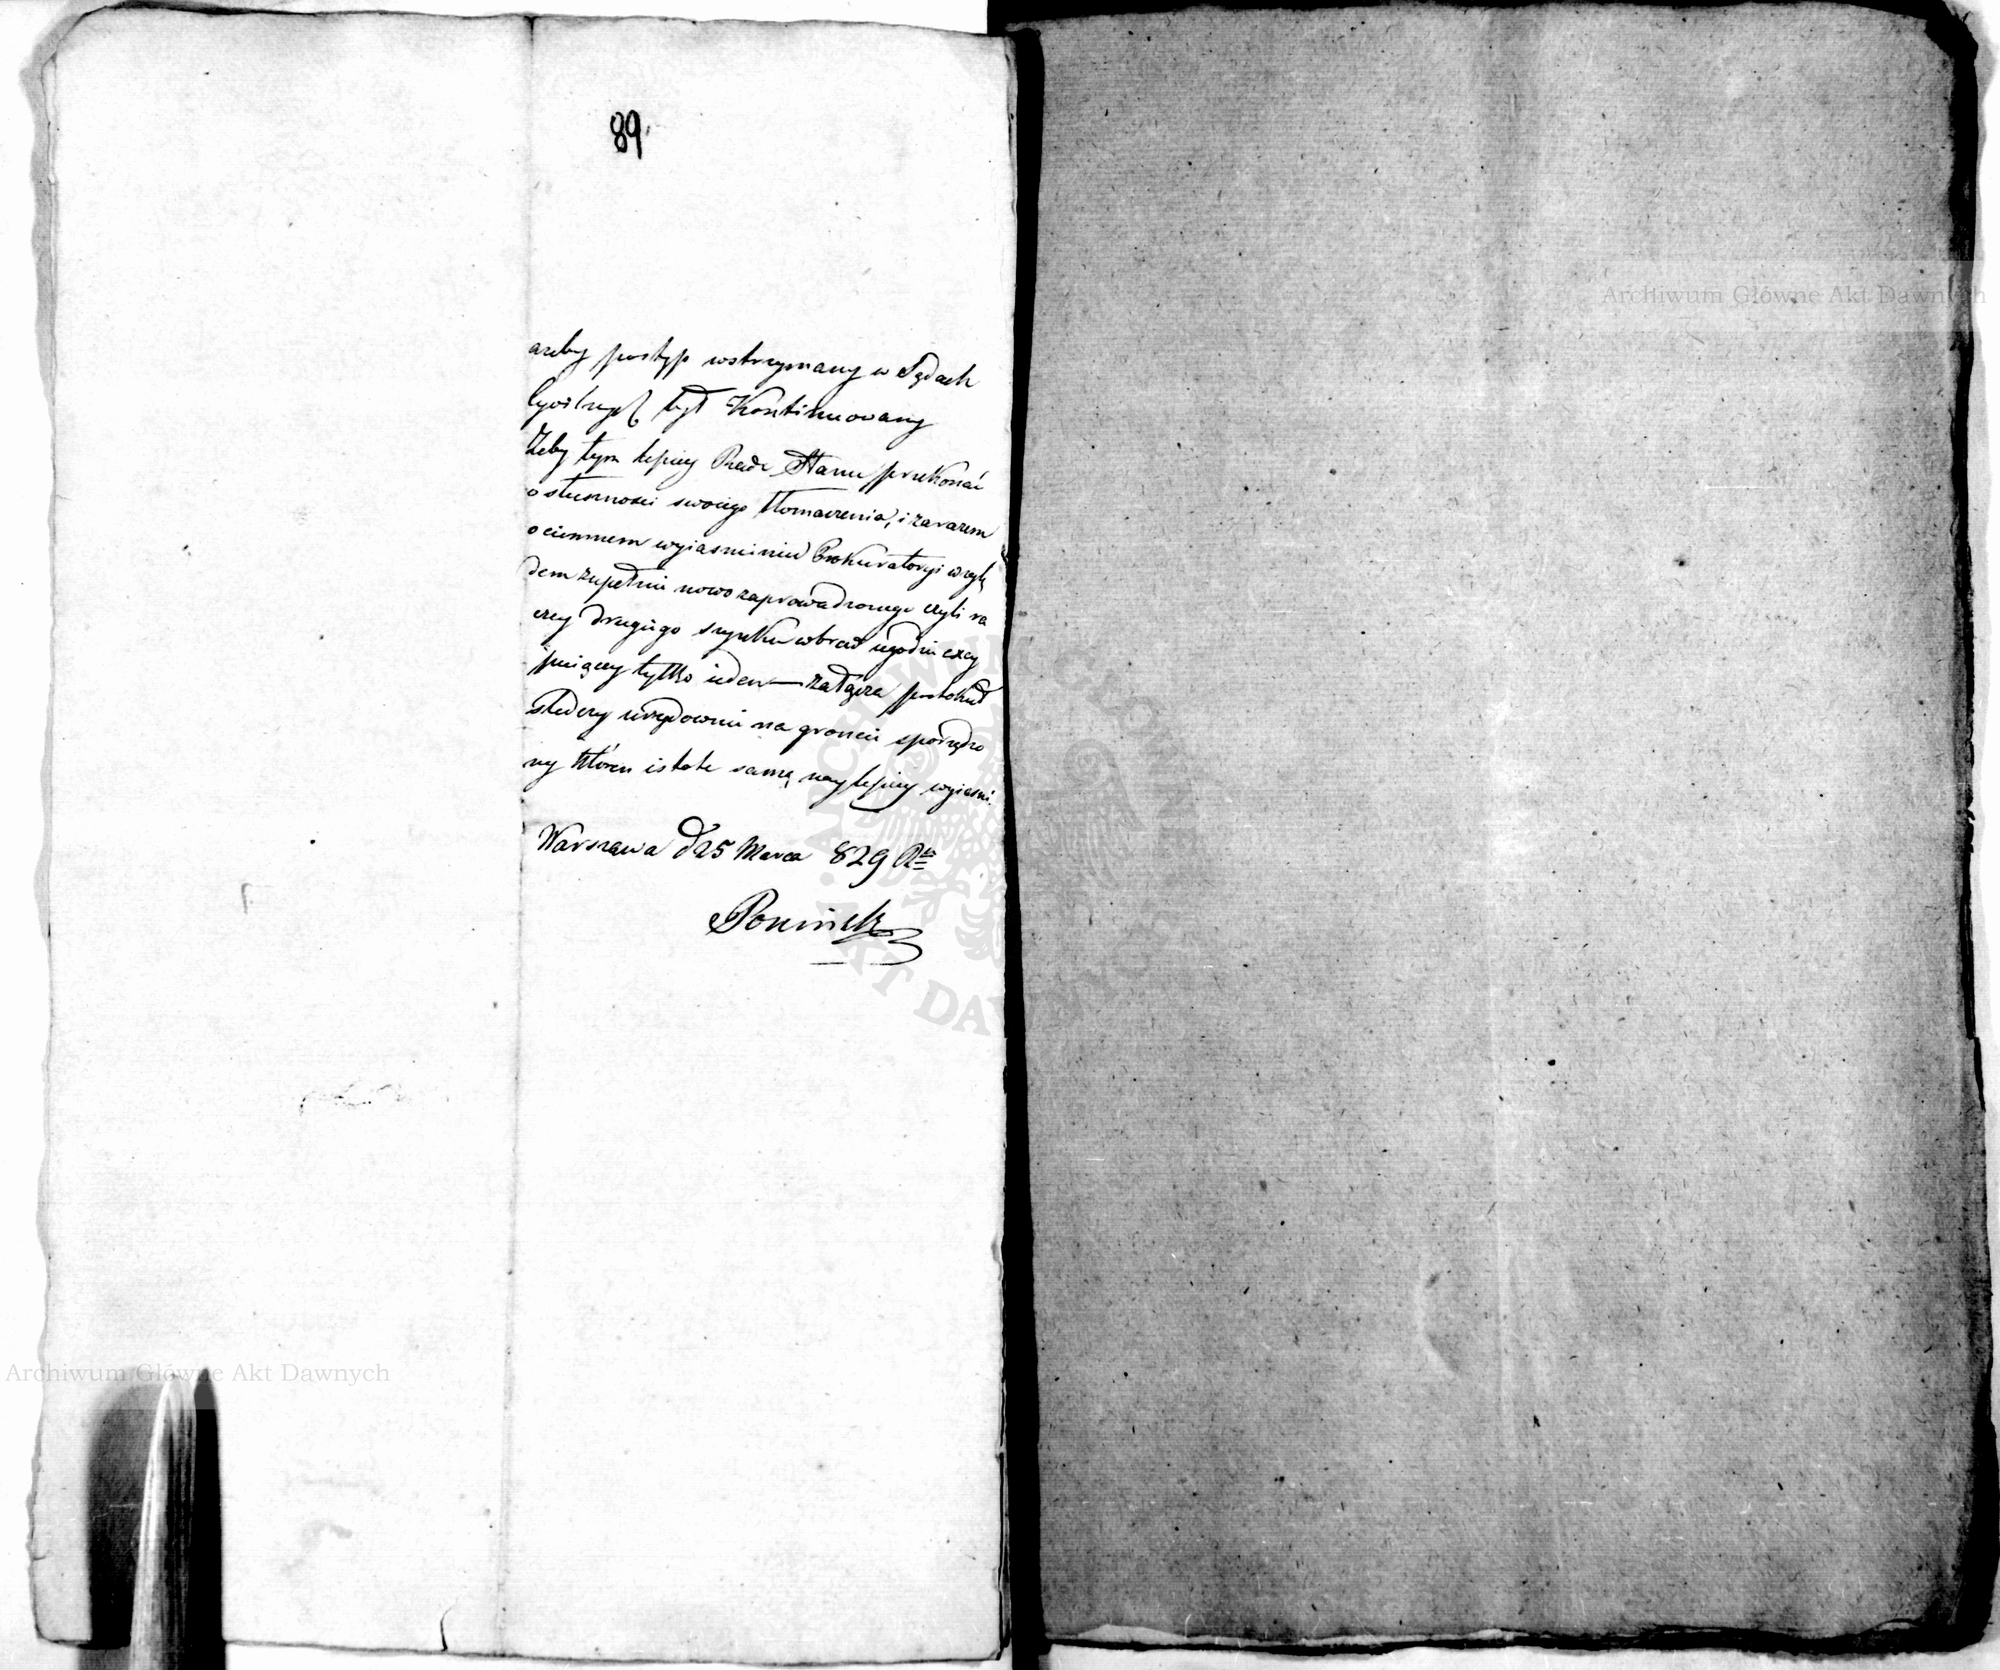 89.
azeby postęp wstrzymany w Sądach
Cywilnych był Kontinuowany
Żeby tym lepiey Radę Stanu przekonać
o słusznosci swoiego tłomaczenia, i zarazem
o ciemnem wyiasnieniu Prokuratoryi wzglę
dem zupełnie nowo zaprowadzonego czyli ra
czey drugiego szynku wbrew ugodzie
tylko ieden — załącza protokuł
urzędownie na gruncie sporządzo
ny który istotę samą naylepiey wyiasni.
Warszawa d 25 Marca 829 Rku
Poniński
Archiwum Główne Akt Dawnych
Archiwum Główne Akt Dawnych
ARCHIWUM GŁÓWNE AKT DAWNYCH